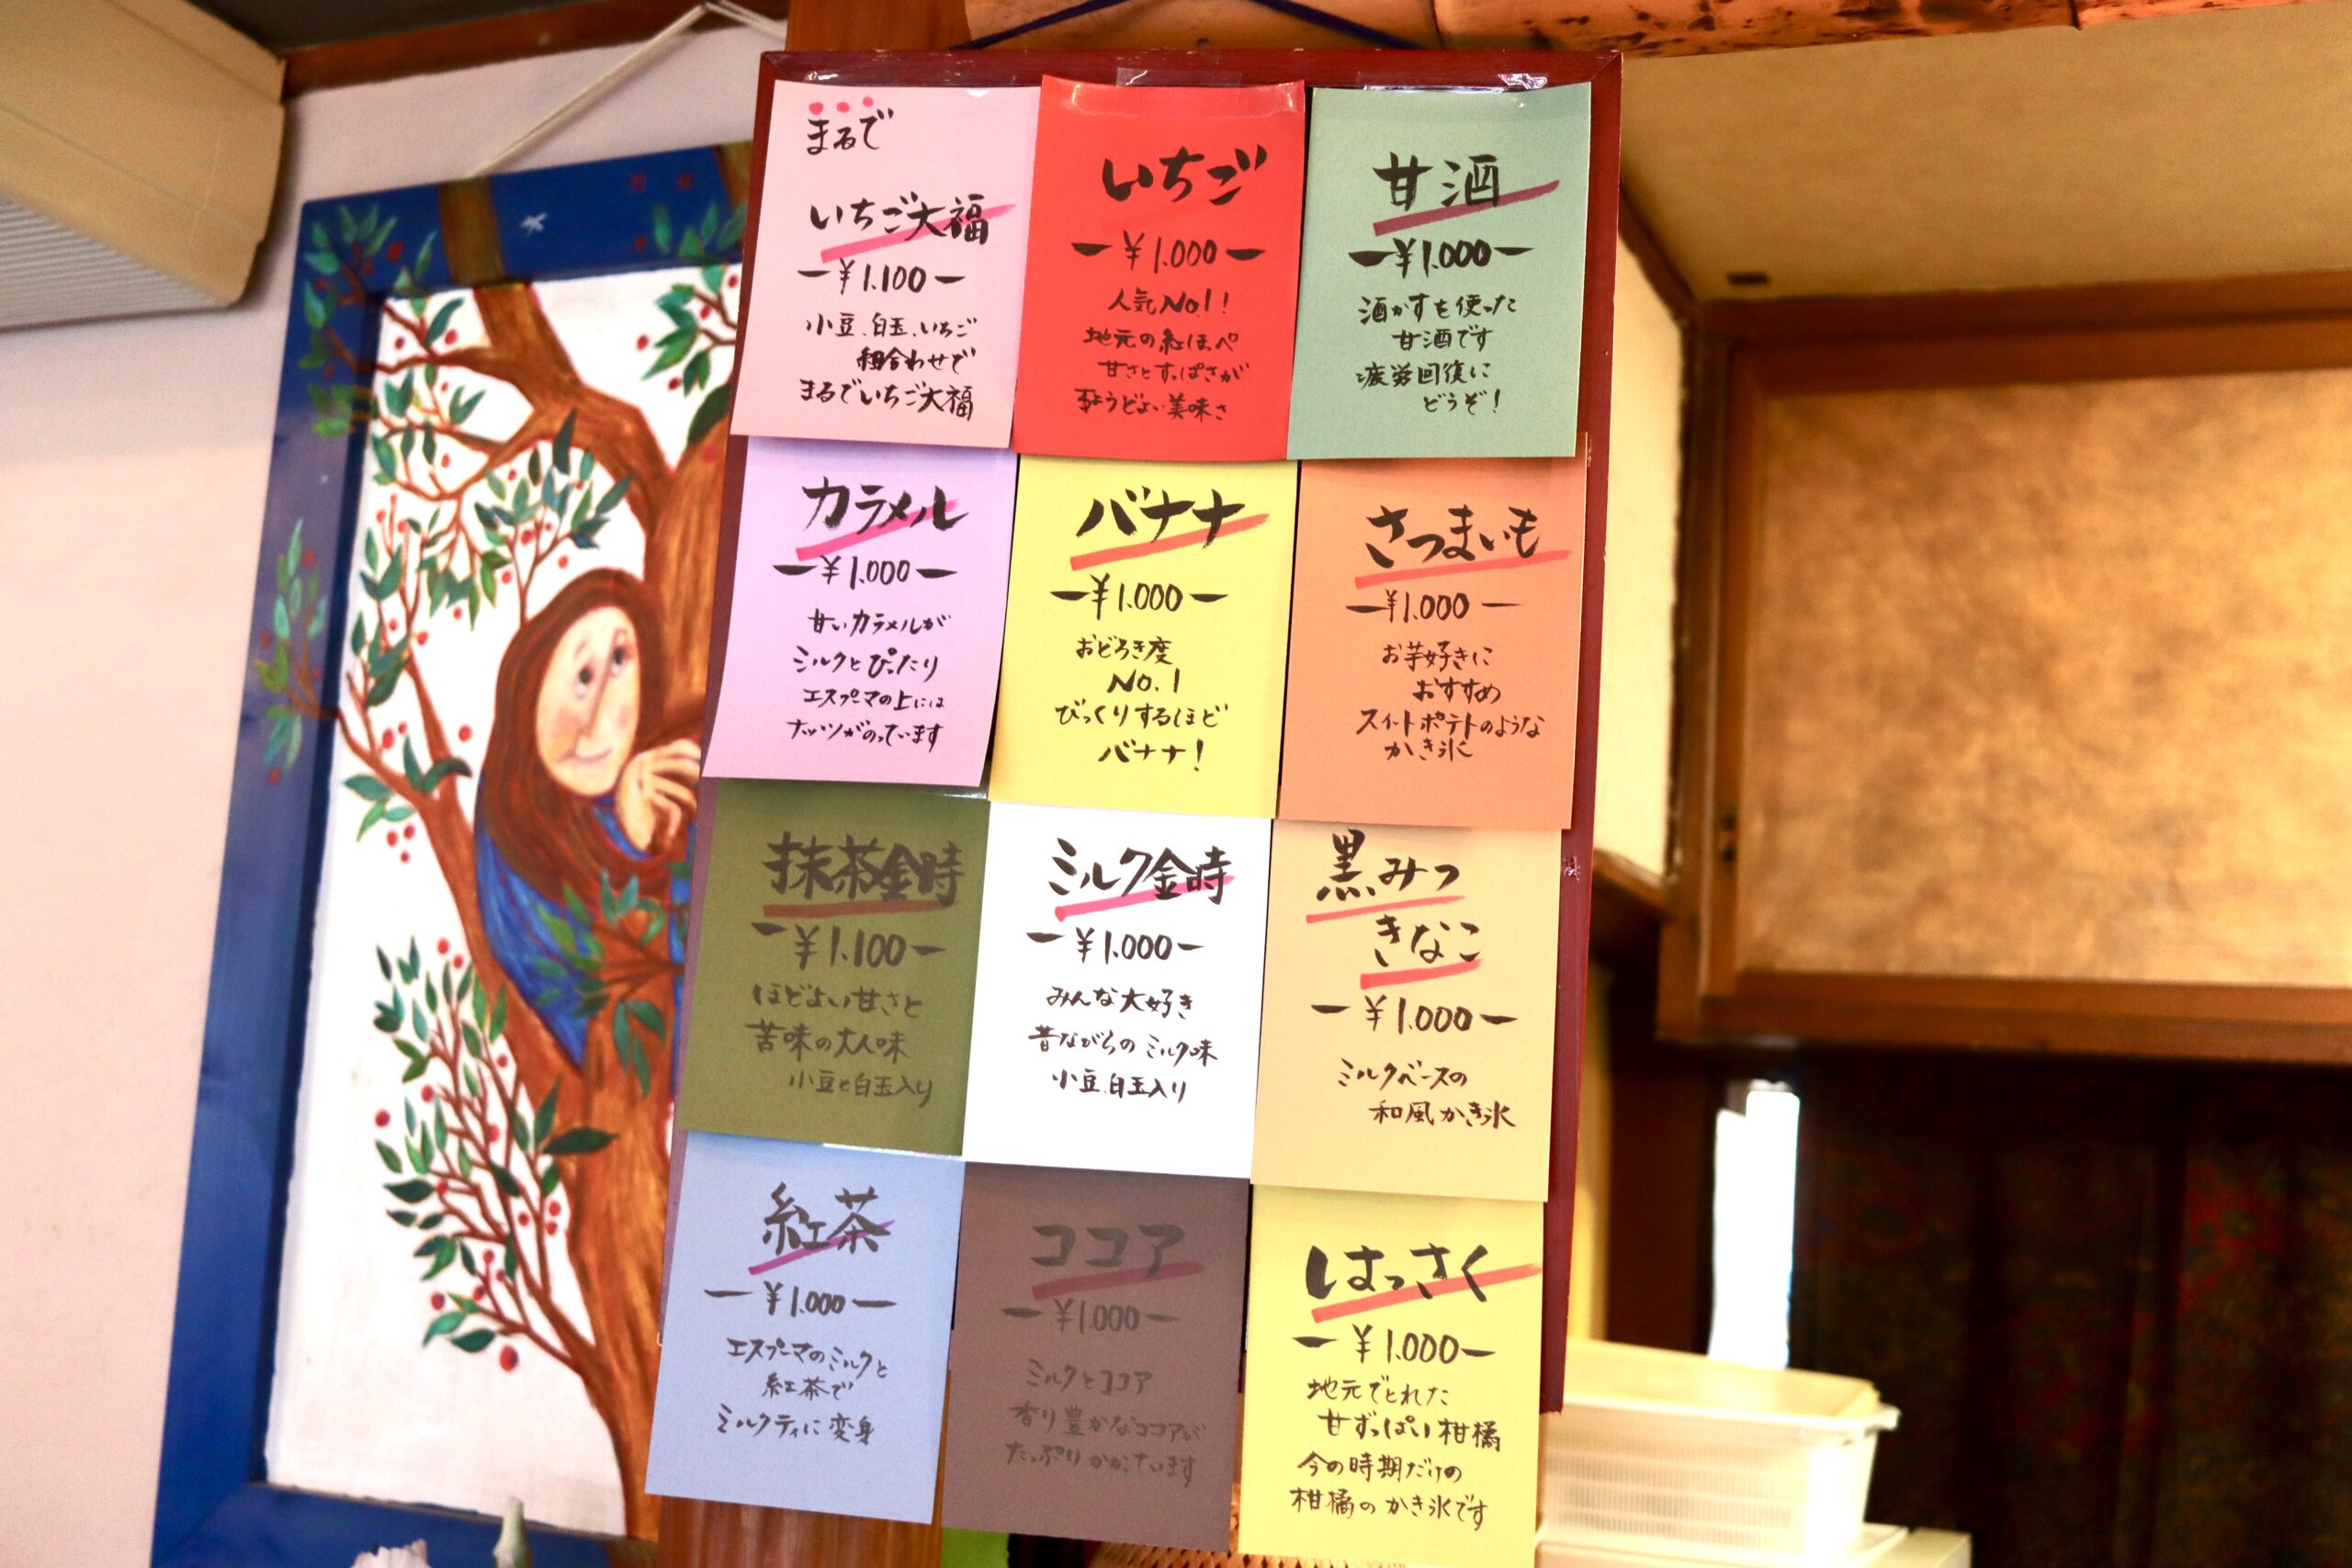 まるで
いちご大福
¥1.100
小豆、白玉、いちご
組合わせで
まるでいちご大福
いちご
¥1.000
人気No.1！
地元の紅ほっぺ
甘さとすっぱさが
ちょうどよい美味さ
甘酒
¥1.000
酒かすを使った
甘酒です
疲労回復に
どうぞ！
カラメル
¥1.000
甘いカラメルが
ミルクとぴったり
エスプーマの上には
ナッツがのっています
バナナ
¥1.000
おどろき度
No.1
びっくりするほど
バナナ！
さつまいも
¥1.000
お芋好きに
おすすめ
スイートポテトのような
かき氷
抹茶金時
¥1.100
ほどよい甘さと
苦味の大人味
小豆と白玉入り
ミルク金時
¥1.000
みんな大好き
昔ながらのミルク味
小豆、白玉入り
黒みつ
きなこ
¥1.000
ミルクベースの
和風かき氷
紅茶
¥1.000
エスプーマのミルクと
紅茶で
ミルクティに変身
ココア
¥1.000
ミルクとココア
香り豊かなココアが
たっぷりかかっています
はっさく
¥1.000
地元でとれた
甘ずっぱい柑橘
今の時期だけの
柑橘のかき氷です